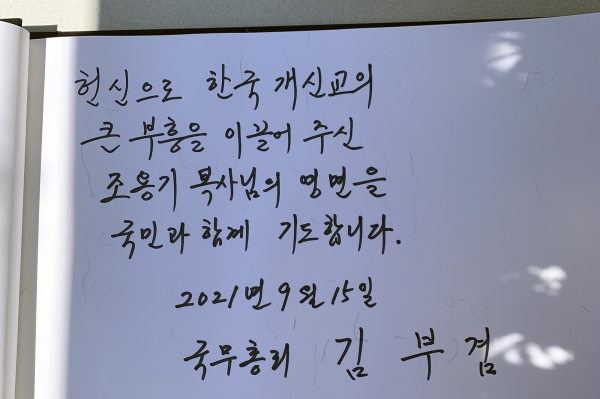 헌신으로 한국 개신교의
큰 부흥을 이끌어 주신
조용기 목사님의 영면을
국민과 함께 기도합니다.
2021년 9월 15일
국무총리 김 부 겸